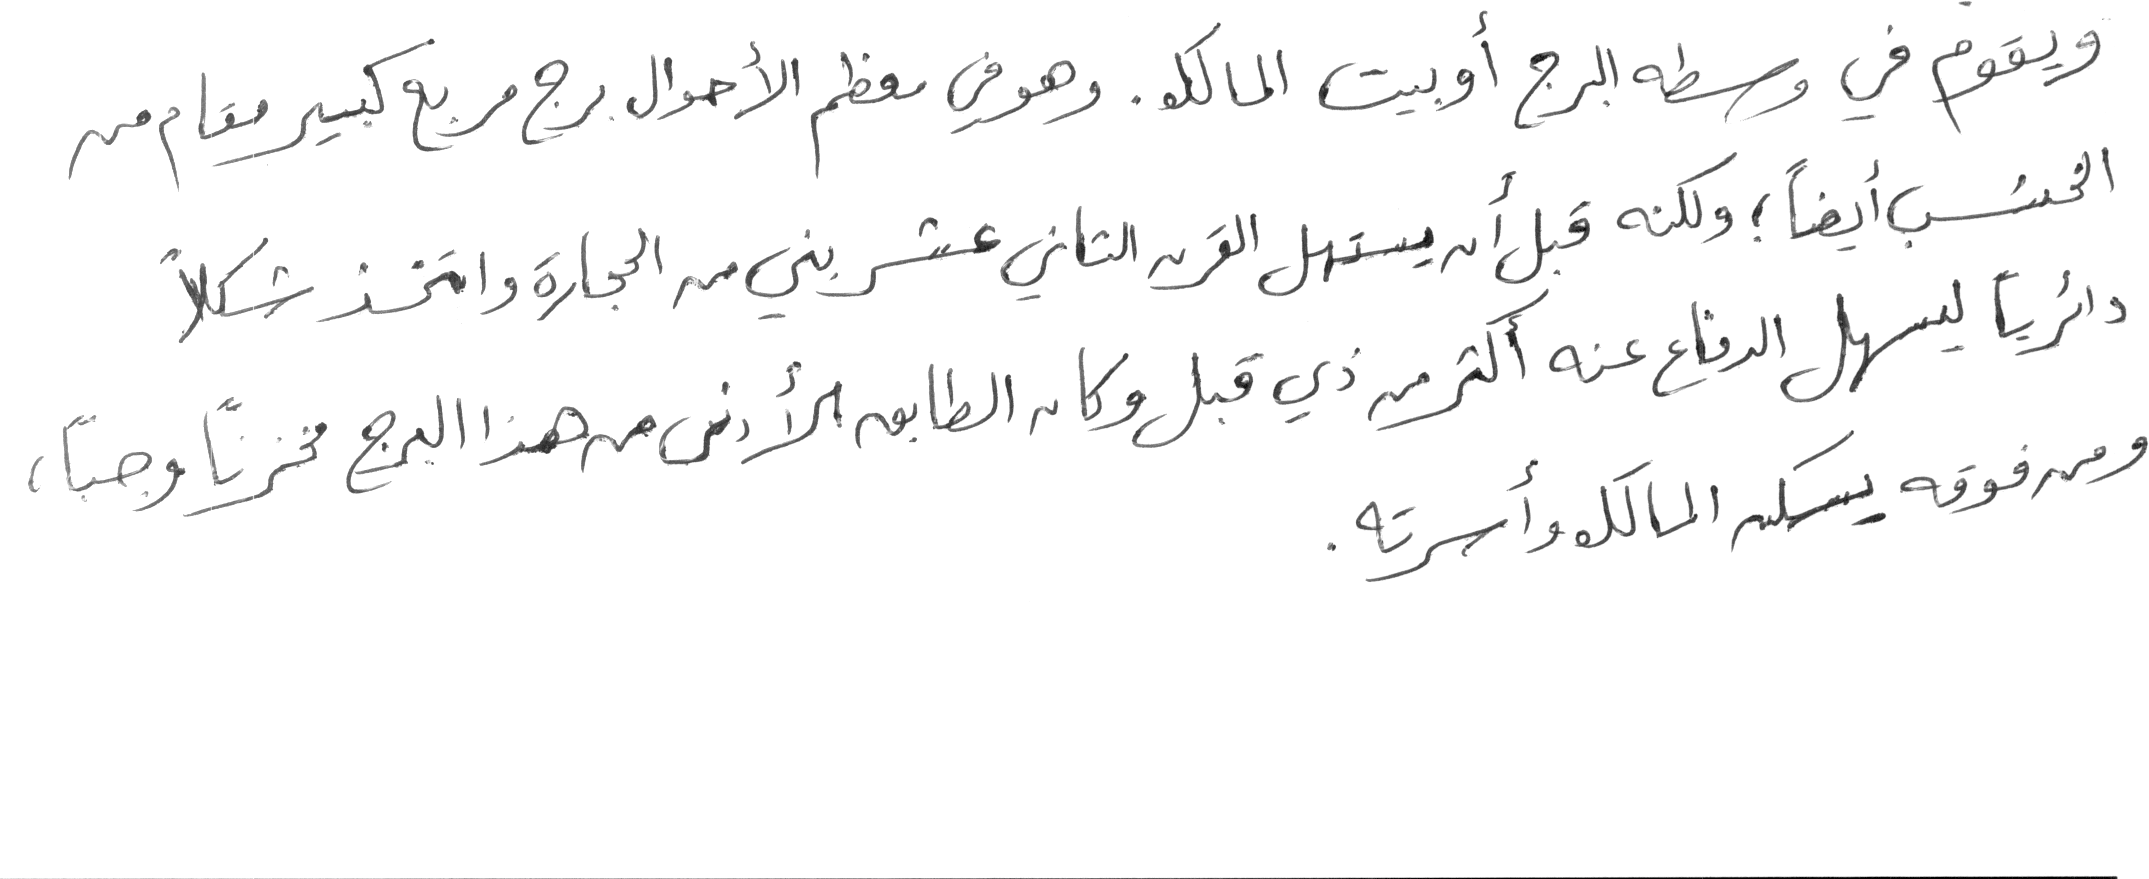 ويقوم في وسطه البرج أو بيت المالك. وهو في معظم الأحوال برج مربع كبير مقام من
الخشب أيضاً؛ ولكنه قبل أن يستهل القرن الثاني عشر بني من الحجارة واتخذ شكلاً
دائرياً ليسهل الدفاع عنه أكثر من ذي قبل وكان الطابق الأرضي من هذا البرج مخزناً وجباً،
ومن فوقه يسكن المالك وأسرته.